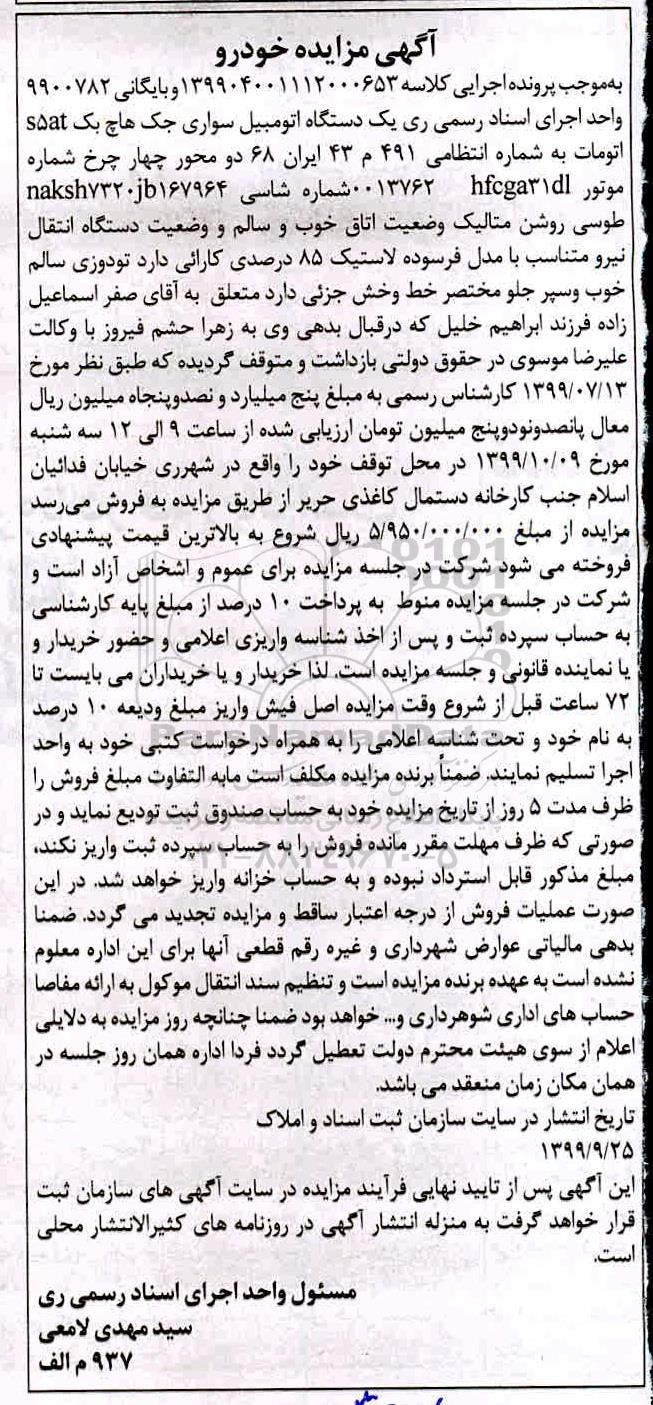 آگهی مزایده خودرو
به‌موجب پرونده اجرایی کلاسه ۱۳۹۹۰۴۰۰۱۱۱۲۰۰۰۶۵۳ و بایگانی ۹۹۰۰۷۸۲
واحد اجرای اسناد رسمی ری یک دستگاه اتومبیل سواری جک هاچ بک s۵at
اتومات به شماره انتظامی ۴۹۱ م ۴۳ ایران ۶۸ دو محور چهار چرخ شماره
موتور hfcga۳۱dl ۰۰۱۳۷۶۲شماره شاسی naksh۷۳۲۰jb۱۶۷۹۶۴
طوسی روشن متالیک وضعیت اتاق خوب و سالم و وضعیت دستگاه انتقال
نیرو متناسب با مدل فرسوده لاستیک ۸۵ درصدی کارائی دارد تودوزی سالم
خوب وسپر جلو مختصر خط وخش جزئی دارد متعلق به آقای صفر اسماعیل
زاده فرزند ابراهیم خلیل که درقبال بدهی وی به زهرا حشم فیروز با وکالت
علیرضا موسوی در حقوق دولتی بازداشت و متوقف گردیده که طبق نظر مورخ
۱۳۹۹/۰۷/۱۳ کارشناس رسمی به مبلغ پنج میلیارد و نصدوپنجاه میلیون ریال
معال پانصدونودوپنج میلیون تومان ارزیابی شده از ساعت ۹ الی ۱۲ سه شنبه
مورخ ۱۳۹۹/۱۰/۰۹ در محل توقف خود را واقع در شهرری خیابان فدائیان
اسلام جنب کارخانه دستمال کاغذی حریر از طریق مزایده به فروش می‌رسد
مزایده از مبلغ ۵/۹۵۰/۰۰۰/۰۰۰ ریال شروع به بالاترین قیمت پیشنهادی
فروخته می شود شرکت در جلسه مزایده برای عموم و اشخاص آزاد است و
شرکت در جلسه مزایده منوط به پرداخت ۱۰ درصد از مبلغ پایه کارشناسی
به حساب سپرده ثبت و پس از اخذ شناسه واریزی اعلامی و حضور خریدار و
یا نماینده قانونی و جلسه مزایده است. لذا خریدار و یا خریداران می بایست تا
۷۲ ساعت قبل از شروع وقت مزایده اصل فیش واریز مبلغ ودیعه ۱۰ درصد
به نام خود و تحت شناسه اعلامی را به همراه درخواست کتبی خود به واحد
اجرا تسلیم نمایند. ضمناً برنده مزایده مکلف است مابه التفاوت مبلغ فروش را
ظرف مدت ۵ روز از تاریخ مزایده خود به حساب صندوق ثبت تودیع نماید و در
صورتی که ظرف مهلت مقرر مانده فروش را به حساب سپرده ثبت واریز نکند،
مبلغ مذکور قابل استرداد نبوده و به حساب خزانه واریز خواهد شد. در این
صورت عملیات فروش از درجه اعتبار ساقط و مزایده تجدید می گردد. ضمنا
بدهی مالیاتی عوارض شهرداری و غیره رقم قطعی آنها برای این اداره معلوم
نشده است به عهده برنده مزایده است و تنظیم سند انتقال موکول به ارائه مفاصا
حساب های اداری شوهرداری و... خواهد بود ضمنا چنانچه روز مزایده به دلایلی
اعلام از سوی هیئت محترم دولت تعطیل گردد فردا اداره همان روز جلسه در
همان مکان زمان منعقد می باشد.
تاریخ انتشار در سایت سازمان ثبت اسناد و املاک
۱۳۹۹/۹/۲۵
این آگهی پس از تایید نهایی فرآیند مزایده در سایت آگهی های سازمان ثبت
قرار خواهد گرفت به منزله انتشار آگهی در روزنامه های کثیرالانتشار محلی
است.
مسئول واحد اجرای اسناد رسمی ری
سید مهدی لامعی
۹۳۷ م الف
ParsNamadData
۰۲۱-۸۸۳۴۹۶۷۰-۵